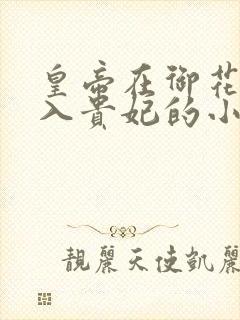 皇帝在御花
入貴妃的小
靚麗天使凱麗